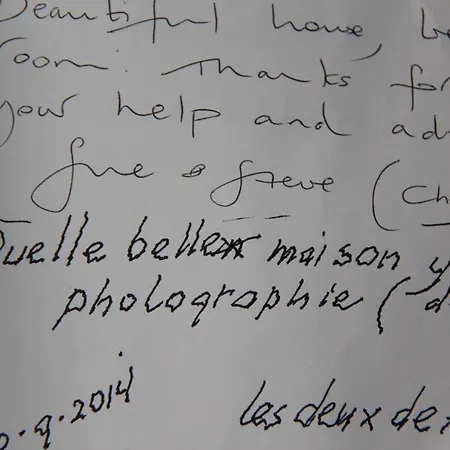 Beautiful house, be
room. Thanks for
your help and adv
Sue & Steve (Ch
Quelle belle maison y
photographie (d
.9.2014
Les deux de